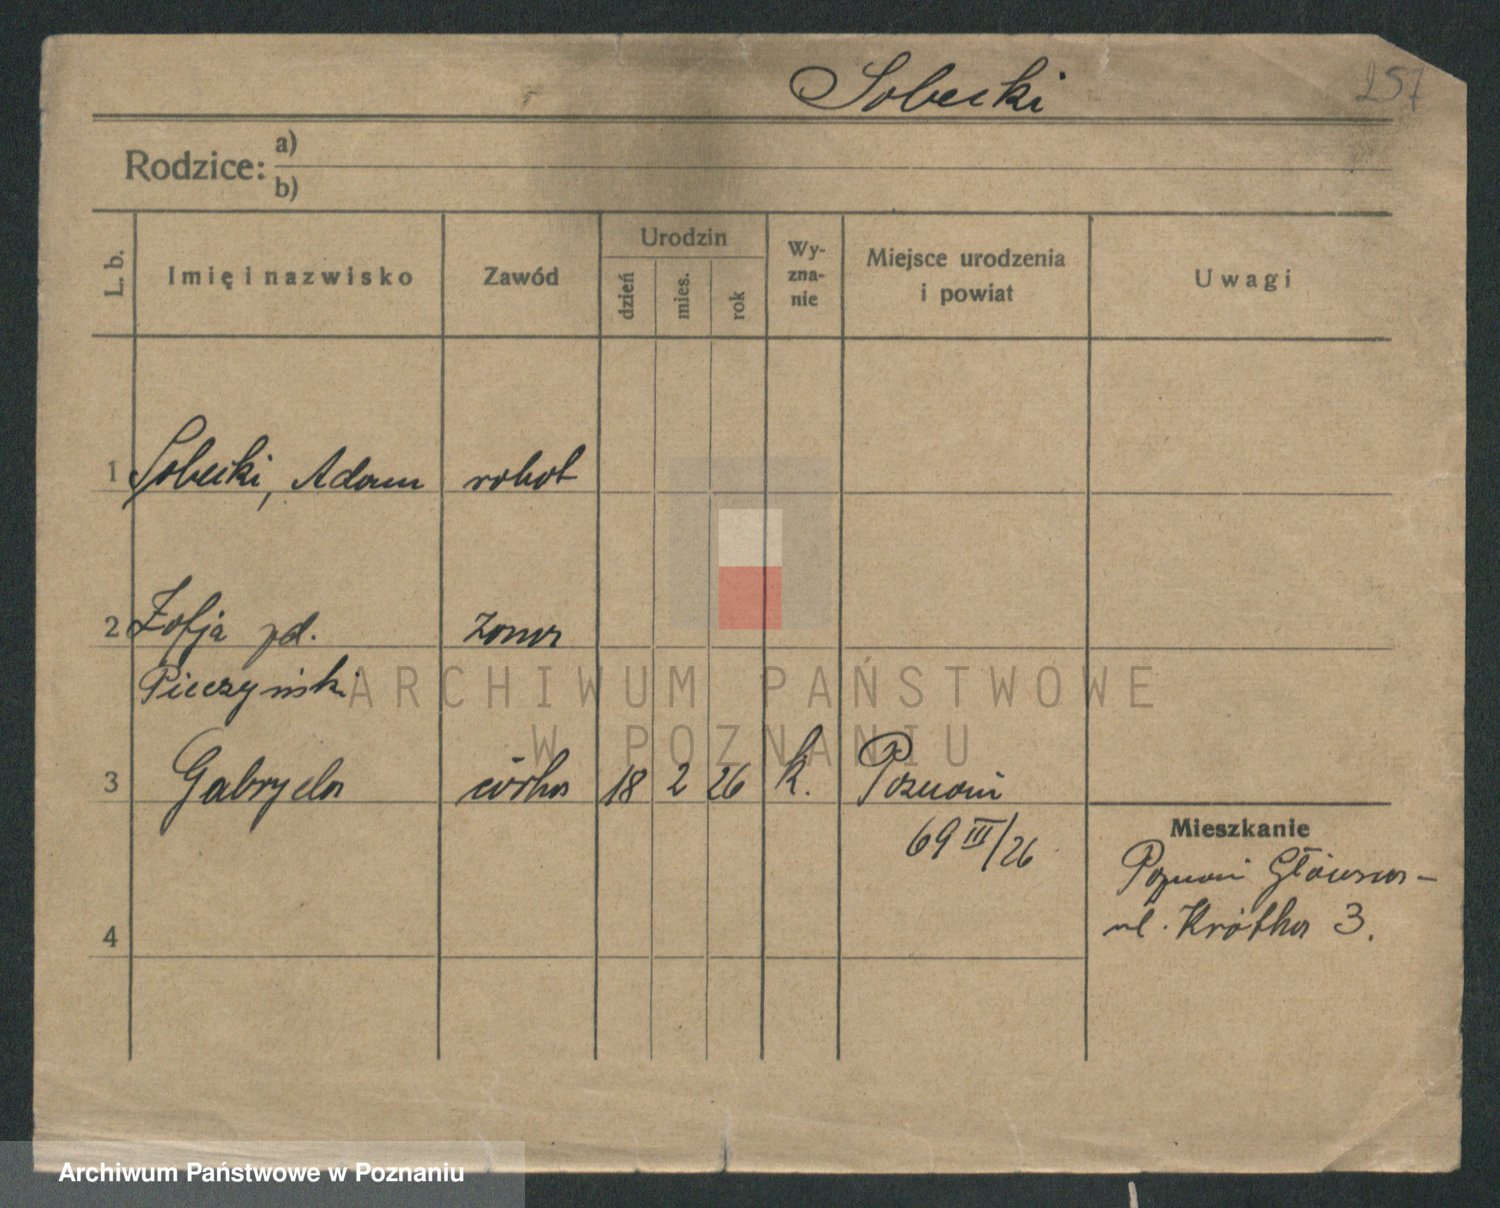 Sobecki
257
Rodzice: a)
b)
L. b. Imię i nazwisko Zawód Urodzin dzień mies. rok Wy-zna-nie Miejsce urodzenia i powiat Uwagi
1 Sobecki, Adam robot
2 Zofja pd. żona
Pieczyński
ARCHIWUM PAŃSTWOWE
W POZNANIU
3 Gabryela córka 18 2 26 k. Poznań
69 III/26
Mieszkanie
Poznań Główna-
ul. Krótka 3.
4
Archiwum Państwowe w Poznaniu